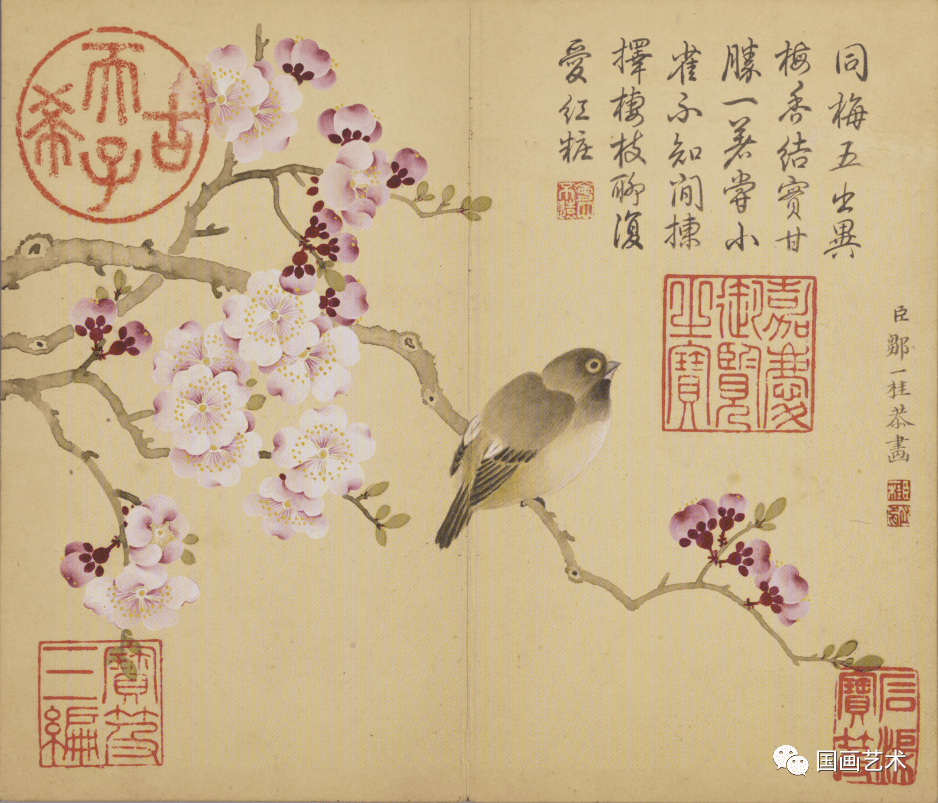 同梅五出異
梅香結實甘
勝一著嘗小
雀不知閒揀
擇棲枝聊復
愛紅粧
臣鄒一桂恭畫
古希天子
嘉慶御覽之寶
寶笈三編
国画艺术